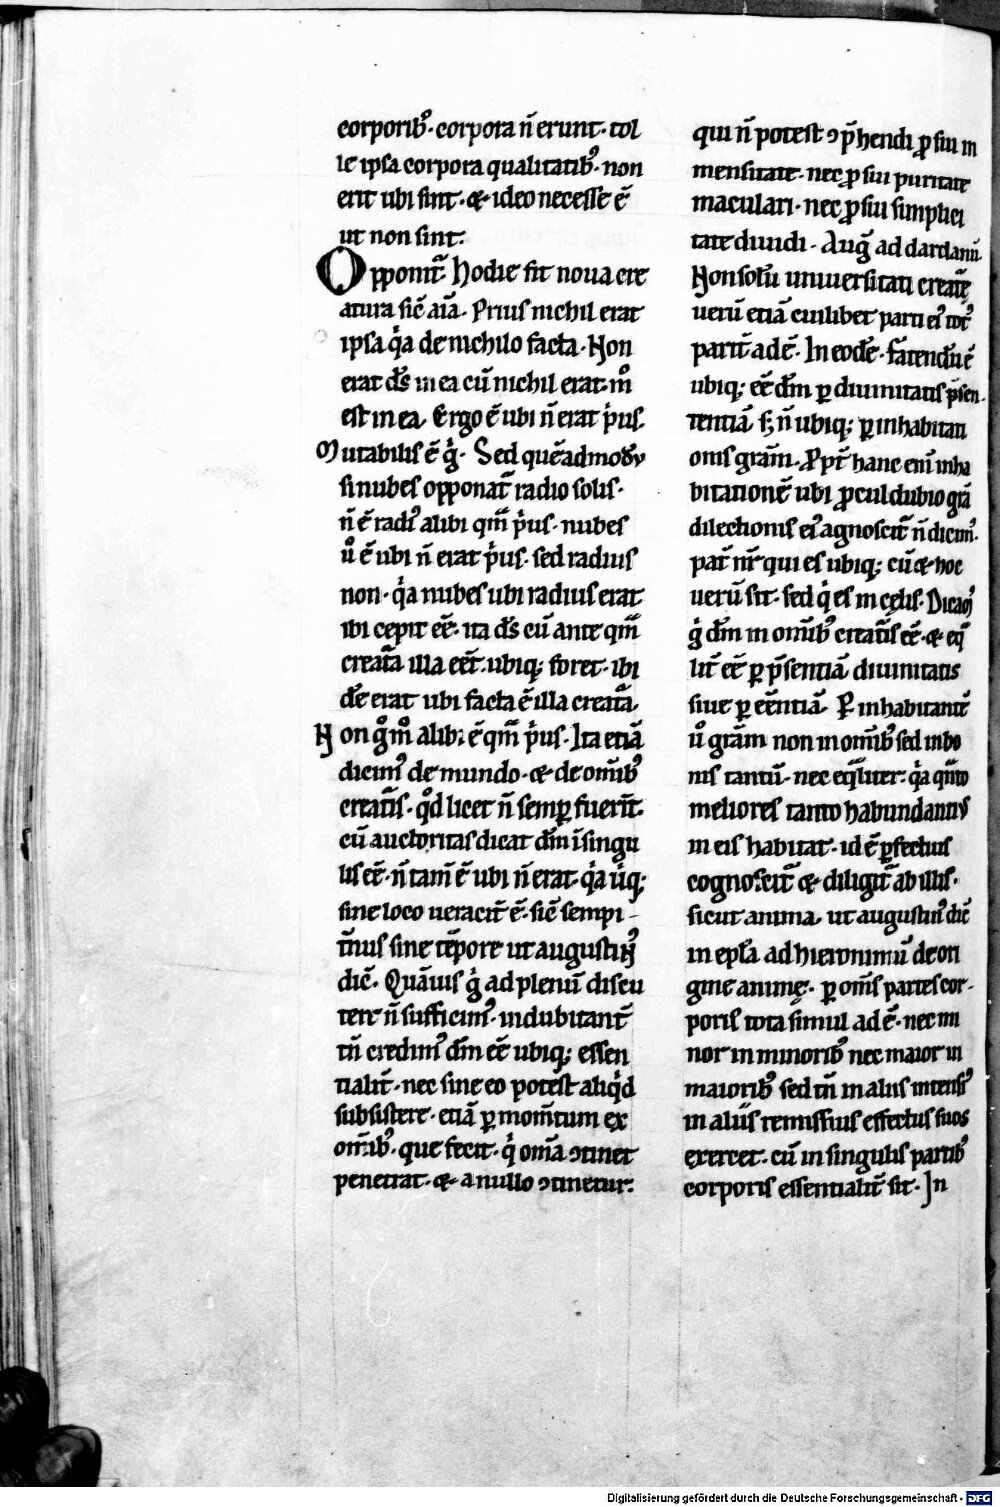 corporib᷒. corpora n̄ erunt. tol
le ipsa corpora qualitatib᷒. non
erit ubi sint. & ideo necesse ē
ut non sint.
Opponit᷑. Hodie fit noua cre
atura sic̄ aīa. Prius nichil erat
ipsa qͥa de nichilo facta. Non
erat ds̄ in ea cū nichil erat. mͦ
est in ea. Ergo ē ubi n̄ erat pͥus.
Mutabilis ē gͥ. Sed quēadmodū
si nubes opponat᷑ radio solis.
n̄ ē radi᷒ alibi qm̄ pͥus. nubes
uͦ ē ubi n̄ erat pͥus. sed radius
non. qͥa nubes ubi radius erat
ibi cepit eē. ita ds̄ cū ante qm̄
creat᷑a illa eēt. ubiq; foret. ibi
dē erat ubi facta ē illa creat᷑a.
Non gͦ mͦ alibi ē qm̄ pͥus. Ita etiā
dicim᷒ de mundo. & de om̄ib᷒
creat᷑is. qͦd licet n̄ semꝑ fuerīt.
cū auctoritas dicat dm̄ ī singu
lis eē. n̄ tam̄ ē ubi n̄ erat. qͥa uͥq;
sine loco ueracit᷑ ē. sic̄ sempi-
t᷑nus sine tēpore ut augustin᷒
dic̄. Quāuis gͥ ad plenū discu
tere n̄ sufficim᷒. indubitant᷑
tn̄ credim᷒ dm̄ eē ubiq; essen
tialit᷑. nec sine eo potest aliqͥd
subsistere. etiā ꝑ mom̄tum ex
om̄ib᷒. que fecit. qͥ om̄a ꝯtinet
penetrat. & a nullo ꝯtinetur.
qui n̄ potest ꝯp̄hendi ꝓ sui in
mensitate. nec ꝓ sui puritate
maculari. nec ꝓ sui simplici
tate diuidi. Auḡ ad dardanū.
Non solū uniuersitati creat᷑ę
uerū etiā cuilibet parti ei᷒ tot᷒
parit᷑ adē. In eodē. fatendū ē
ubiq; eē dm̄ ꝑ diuinitatis p̄sen
tentiā. s; n̄ ubiq; ꝑ inhabitati
onis gram̄. Propt᷑ hanc eni᷑ inha
bitationē ubi ꝓcul dubio grā
dilectionis ei᷒ agnoscit᷑ n̄ dicim᷒.
pat᷑ nr̄ qui es ubiq; cū & hoc
uerū sit. sed qͥ es in cęlis. Dicam᷒
gͥ dm̄ in om̄ib᷒ creat᷑is eē. & eq̄
lit᷑ eē ꝑ p̄sentiā diuinitatis
siue ꝑ eēntiā. Per inhabitantē
uͦ gram̄ non in om̄ib᷒ sed in bo
nis tantū. nec eq̄liter. qͥa qn̄to
meliores tanto habundantius
in eis habitat. id ē ꝑfectius
cognoscit᷑ & diligit᷑ ab illis.
sicut anima. ut augustin᷒ dic̄
in epl̄a ad hieronimū de ori
gine animę. ꝑ om̄s partes cor-
poris tota simul adē. nec mi
nor in minorib᷒ nec maior in
maiorib᷒ sed tn̄ in aliis intensi᷒
in aliis remissius effectus suos
exercet. cū in singulis partib᷒
corporis essentialit᷑ sit. In
Digitalisierung gefördert durch die Deutsche Forschungsgemeinschaft - DFG